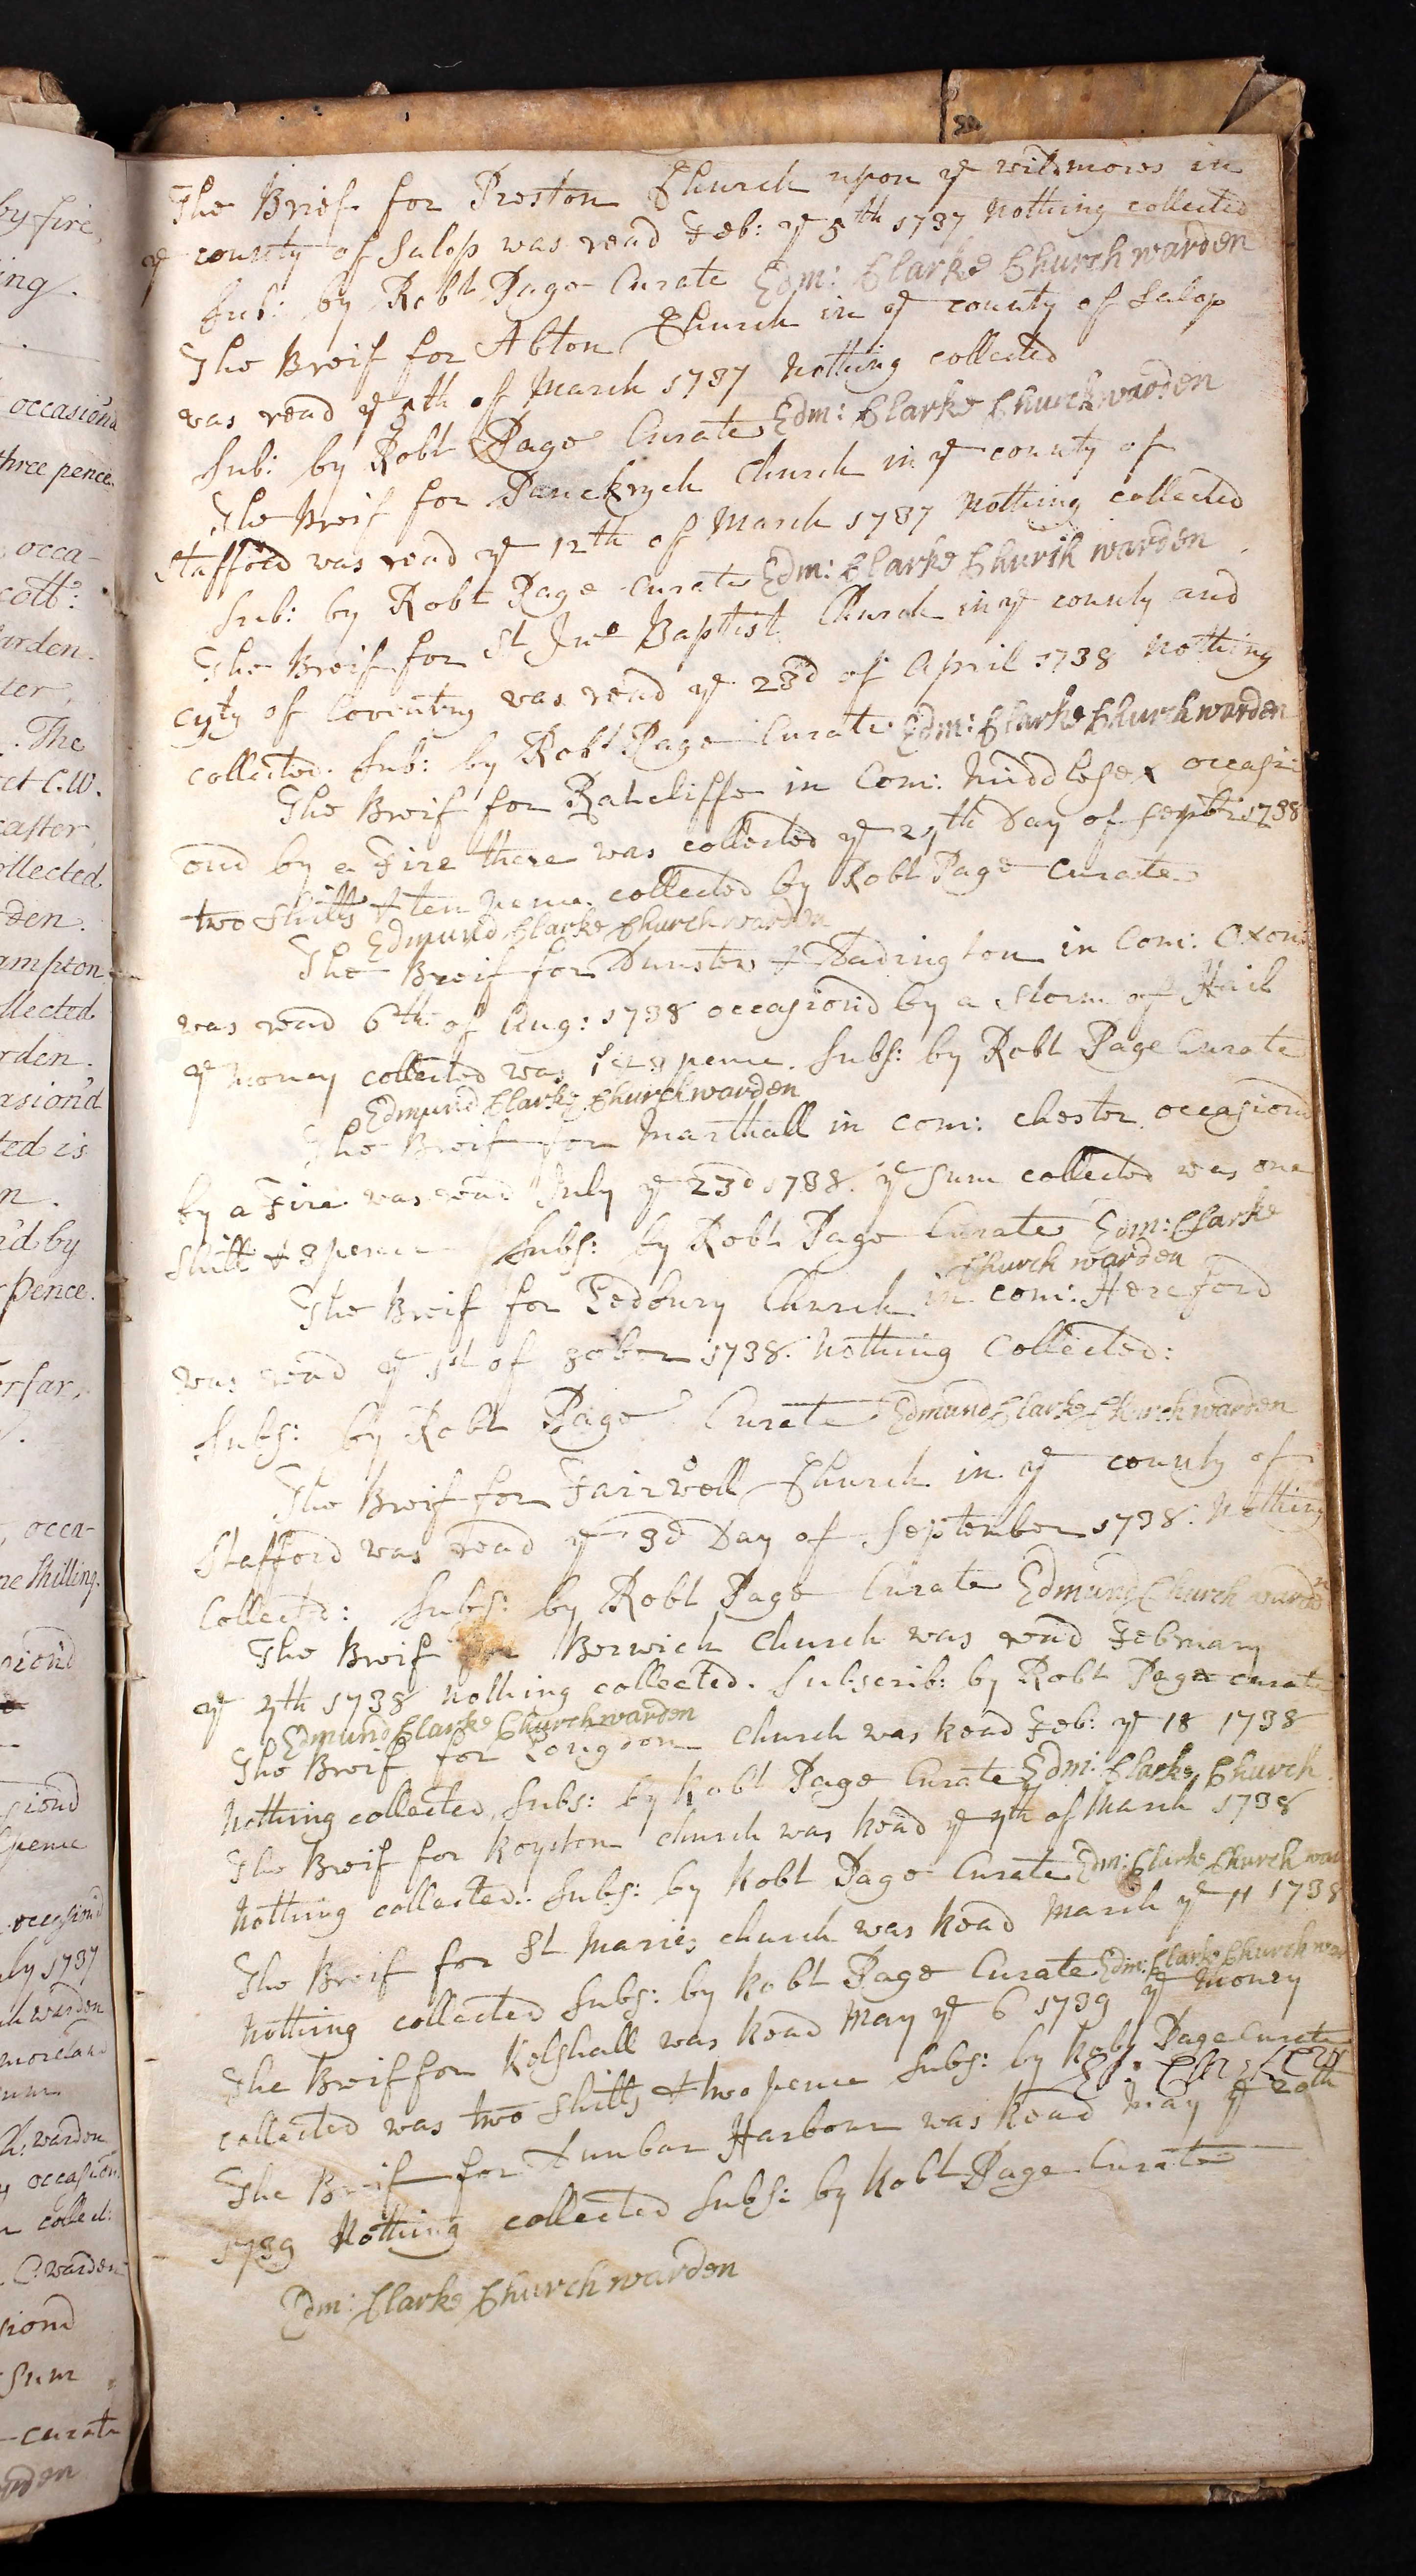 by fire,
ing.
occasion'd
three pence.
occa-
cott:
arden.
ter,
. The
ct C.W.
caster
ollected
den.
ampton
llected
rden.
asion'd
ted is
n.
'd by
pence.
r far,
occa-
ne Shilling.
siond
siond
pence
occasiond
ly 1737
warden
moreland
sum
Ch: warden
occasion
collect:
C: warden
siond
Sum
curate
The Brief for Preston Church upon ye wildmores in
ye county of Salop was read Feb: ye 5th 1737 Nothing collected
Sub: by Robt Page Curate Edm: Clarke Church warden
The Breif for Abton Church in ye county of Salop
was read ye 5th of March 1737 Nothing collected
Sub: by Robt Page Curate Edm: Clarke Churchwarden
The Breif for Panckrych Church in ye county of
Stafford was read ye 12th of March 1737 Nothing collected
Sub: by Robt Page Curate Edm: Clarke Church warden
The Breif for St Jno Baptist Church in ye county and
Cyty of Coventry was read ye 23d of April 1738 Nothing
collected. Sub: by Robt Page Curate Edm: Clarke Churchwarden
The Breif for Ratcliffe in Com: Middlesex occasi
ond by a Fire there was collected ye 24th Day of Septbr 1738
two Shills & ten pence collected by Robt Page Curate
Edmund Clarke Churchwarden
The Breif for Dunstew & Dadington in Com: Oxon:
was read 6th of Aug: 1738 occasiond by a Storm of Hail
ye Money collected was 1s & 3 pence. Subs: by Robt Page Curate
Edmund Clarke Churchwarden
The Breif for Marthall in Com: Chester occasiond
by a Fire was read July ye 23d 1738. ye Sum collected was one
Shill: & 8 pence Subs: by Robt Page Curate Edm: Clarke
Church warden
The Breif for Tedbury Church in Com: Hereford
was read ye 1st of 8ober 1738. Nothing Collected:
Subs: by Robt Page Curate Edmund Clarke Churchwarden
The Breif for Fairwell Church in ye county of
Stafford was read ye 3d Day of September 1738. Nothing
Collected: Subs: by Robt Page Curate Edmund Church warden
The Breif for Berwick Church was read February
ye 4th 1738 Nothing collected. Subscrib: by Robt Page Curate
Edmund Clarke Churchwarden
The Breif for Longdon Church was Read Feb: ye 18 1738
Nothing collected, Subs: by Robt Page Curate Edm: Clarke Church
The Breif for Royston church was Read ye 4th of March 1738
Nothing collected. Subs: by Robt Page Curate Edm: Clarke Church war
The Breif for St Maries church was Read March ye 11 1738
Nothing collected Subs: by Robt Page Curate Edm: Clarke Church war
The Breif for Kelshall was Read May ye 6 1739 ye Money
collected was two Shills & two pence Subs: by Robt Page Curate
Ed: Clarke C W
The Breif for Dunbar Harbour was Read May ye 20th
1739 Nothing collected Subs: by Robt Page Curate
Edm: Clarke Church warden